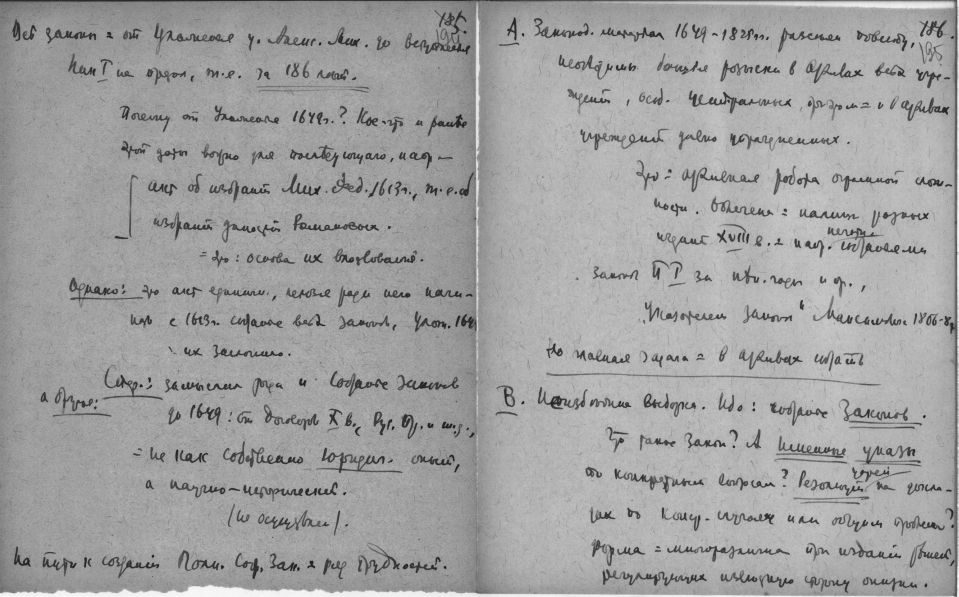 185.
195
Все законы = от Уложения ц. Алекс. Мих. до вступления
Ник I на престол, т.е. за 186 лет.
Почему от Уложения 1649г.? Кое-что и ранее
этой даты важно для последующего, напр –
акт об избрании Мих. Фед. 1613г., т.е. об
избрании династии Романовых.
= Это: основа их властвования.
Однако: это акт единичн., нельзя ради него начи-
нать с 1613г. собрание всех законов, Улож. 1649
их заслонило.
Спер.: замыслил ряди и Собрание Законов
а другое:
до 1649: от договоров X в., Рус. Пр. и т.д.,
= не как собственно юридич. опыт,
а научно-исторический.
(не осуществлен).
На пути к созданию Полн. Соб. Зак. = ряд трудностей.
186.
195
А. Законод. материал 1649-1825гг. рассеян повсюду,
необходимы большие розыски в архивах всех учре-
ждений, особ. центральных, притом = и в архивах
учреждений давно упраздненных.
Это = архивная работа огромной слож-
ности. Облегчена = наличием разных
изданий XVIII в. = напр. собраниями
печатн.
законов П I за отд. годы и др.,
"Указателем законов" Максимовича 1806-
Но главная задача = в архивах искать
В. Неизбежная выборка. Ибо: собрание Законов.
Что такое закон? А именные указы
по конкретным вопросам? Резолюции на докла-
царей
дах по конкр. случаям или общим правилам?
Форма = многоразлична при издании решений,
регулирующих известную сторону жизни.